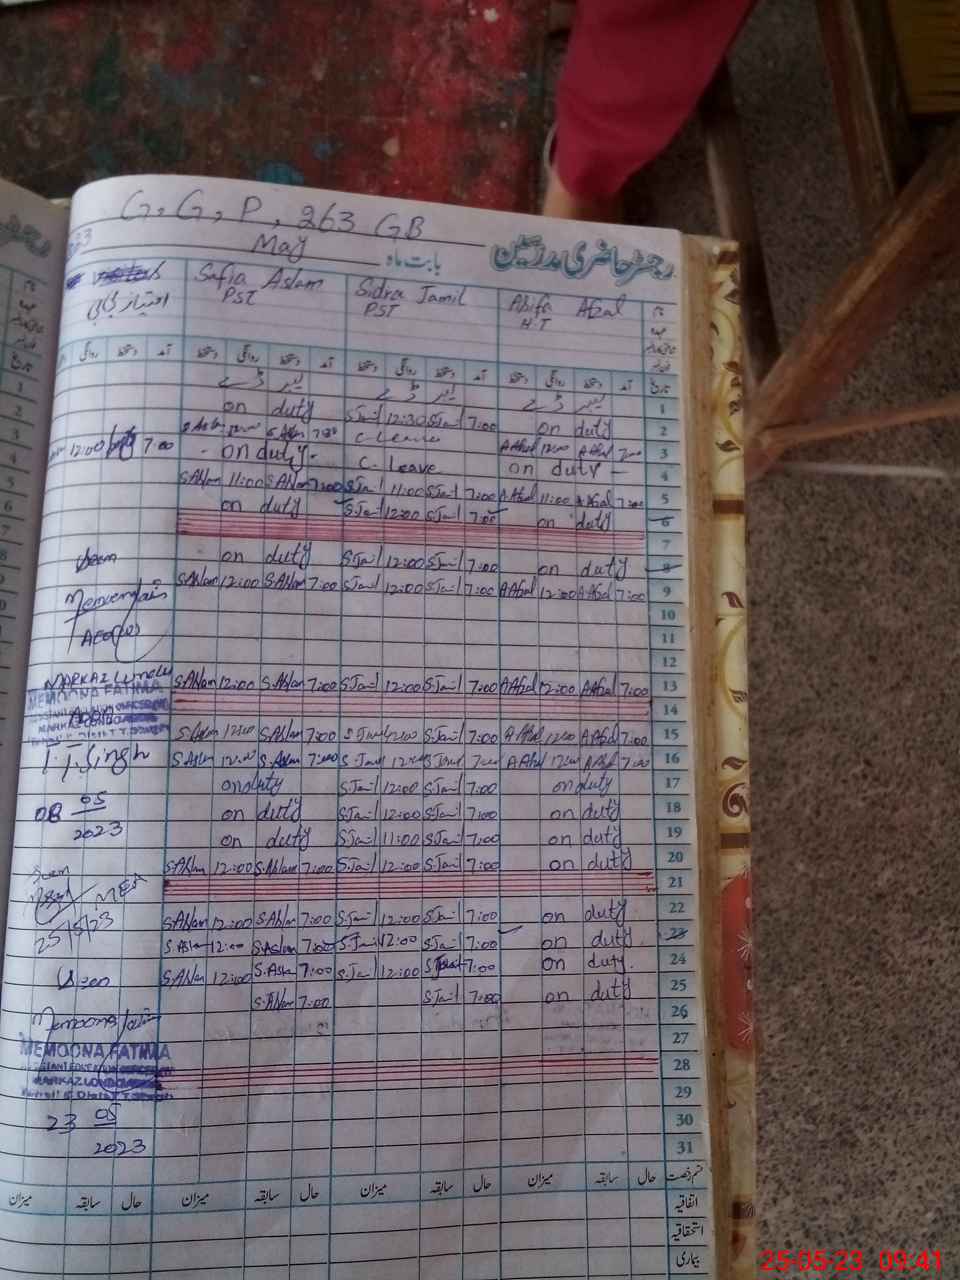 G, G, P, 263 GB
May بابت ماہ رجسٹر حاضری مدرسین
Safia Aslam Sidra Jamil Afzal نام
PST PST H.T عہدہ
روانگی دستخط آمد دستخط روانگی دستخط آمد دستخط روانگی دستخط آمد تاریخ
لیبر ڈے لیبر ڈے لیبر ڈے 1
on duty S.Jamil 12:30 S.Jamil 7:00 on duty 2
S.Aslam 12:00 S.Aslam 7:00 C-Leave A.Afzal 12:00 A.Afzal 7:00 3
12:00 7:00
on duty C-Leave on duty 4
S.Aslam 11:00 S.Aslam 7:00 S.Jamil 11:00 S.Jamil 7:00 A.Afzal 11:00 A.Afzal 7:00 5
on duty S.Jamil 12:00 S.Jamil 7:00 on duty 6
7
Seen on duty S.Jamil 12:00 S.Jamil 7:00 on duty 8
S.Aslam 12:00 S.Aslam 7:00 S.Jamil 12:00 S.Jamil 7:00 A.Afzal 12:00 A.Afzal 7:00 9
10
11
12
MARKAZ S.Aslam 12:00 S.Aslam 7:00 S.Jamil 12:00 S.Jamil 7:00 A.Afzal 12:00 A.Afzal 7:00 13
MEMOONA FATIMA
14
S.Aslam 12:00 S.Aslam 7:00 S.Jamil 12:00 S.Jamil 7:00 A.Afzal 12:00 A.Afzal 7:00 15
T.T.Singh S.Aslam 12:00 S.Aslam 7:00 S.Jamil 12:00 S.Jamil 7:00 A.Afzal 12:00 A.Afzal 7:00 16
on duty S.Jamil 12:00 S.Jamil 7:00 on duty 17
08 05 on duty S.Jamil 12:00 S.Jamil 7:00 on duty 18
2023
on duty S.Jamil 11:00 S.Jamil 7:00 on duty 19
Seen S.Aslam 12:00 S.Aslam 7:00 S.Jamil 12:00 S.Jamil 7:00 on duty 20
MEA 21
25/5/23 S.Aslam 12:00 S.Aslam 7:00 S.Jamil 12:00 S.Jamil 7:00 on duty 22
S.Aslam 12:00 S.Aslam 7:00 S.Jamil 12:00 S.Jamil 7:00 on duty 23
Seen S.Aslam 12:00 S.Aslam 7:00 S.Jamil 12:00 7:00 on duty 24
S.Aslam 7:00 S.Jamil 7:00 on duty 25
Memoona 26
27
MEMOONA FATIMA 28
29
23 05 30
2023 31
میزان سابقہ حال میزان سابقہ حال میزان سابقہ حال میزان سابقہ حال قسم رخصت
اتفاقیہ
استحقاقیہ
بیماری
25-05-23 09:41